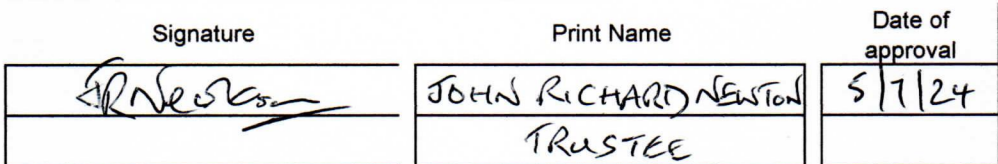 Signature Print Name Date of
approval
JRNewton JOHN RICHARD NEWTON 5/7/24
TRUSTEE